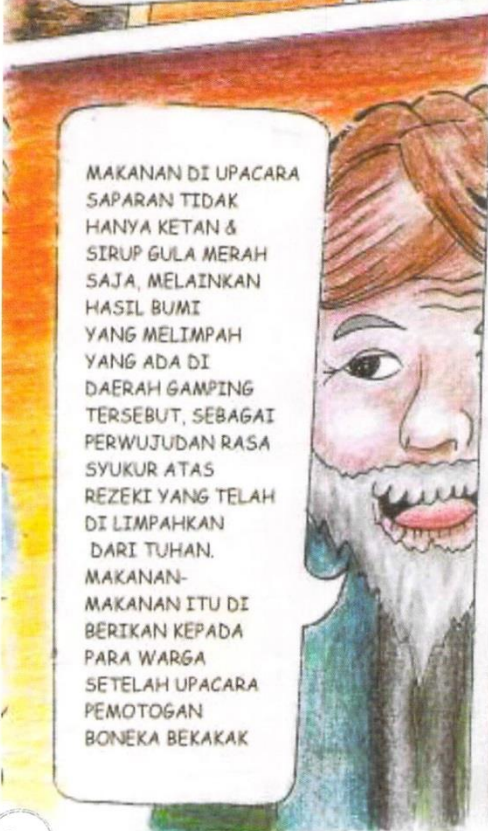 MAKANAN DI UPACARA
SAPARAN TIDAK
HANYA KETAN &
SIRUP GULA MERAH
SAJA, MELAINKAN
HASIL BUMI
YANG MELIMPAH
YANG ADA DI
DAERAH GAMPING
TERSEBUT, SEBAGAI
PERWUJUDAN RASA
SYUKUR ATAS
REZEKI YANG TELAH
DI LIMPAHKAN
DARI TUHAN.
MAKANAN-
MAKANAN ITU DI
BERIKAN KEPADA
PARA WARGA
SETELAH UPACARA
PEMOTOGAN
BONEKA BEKAKAK